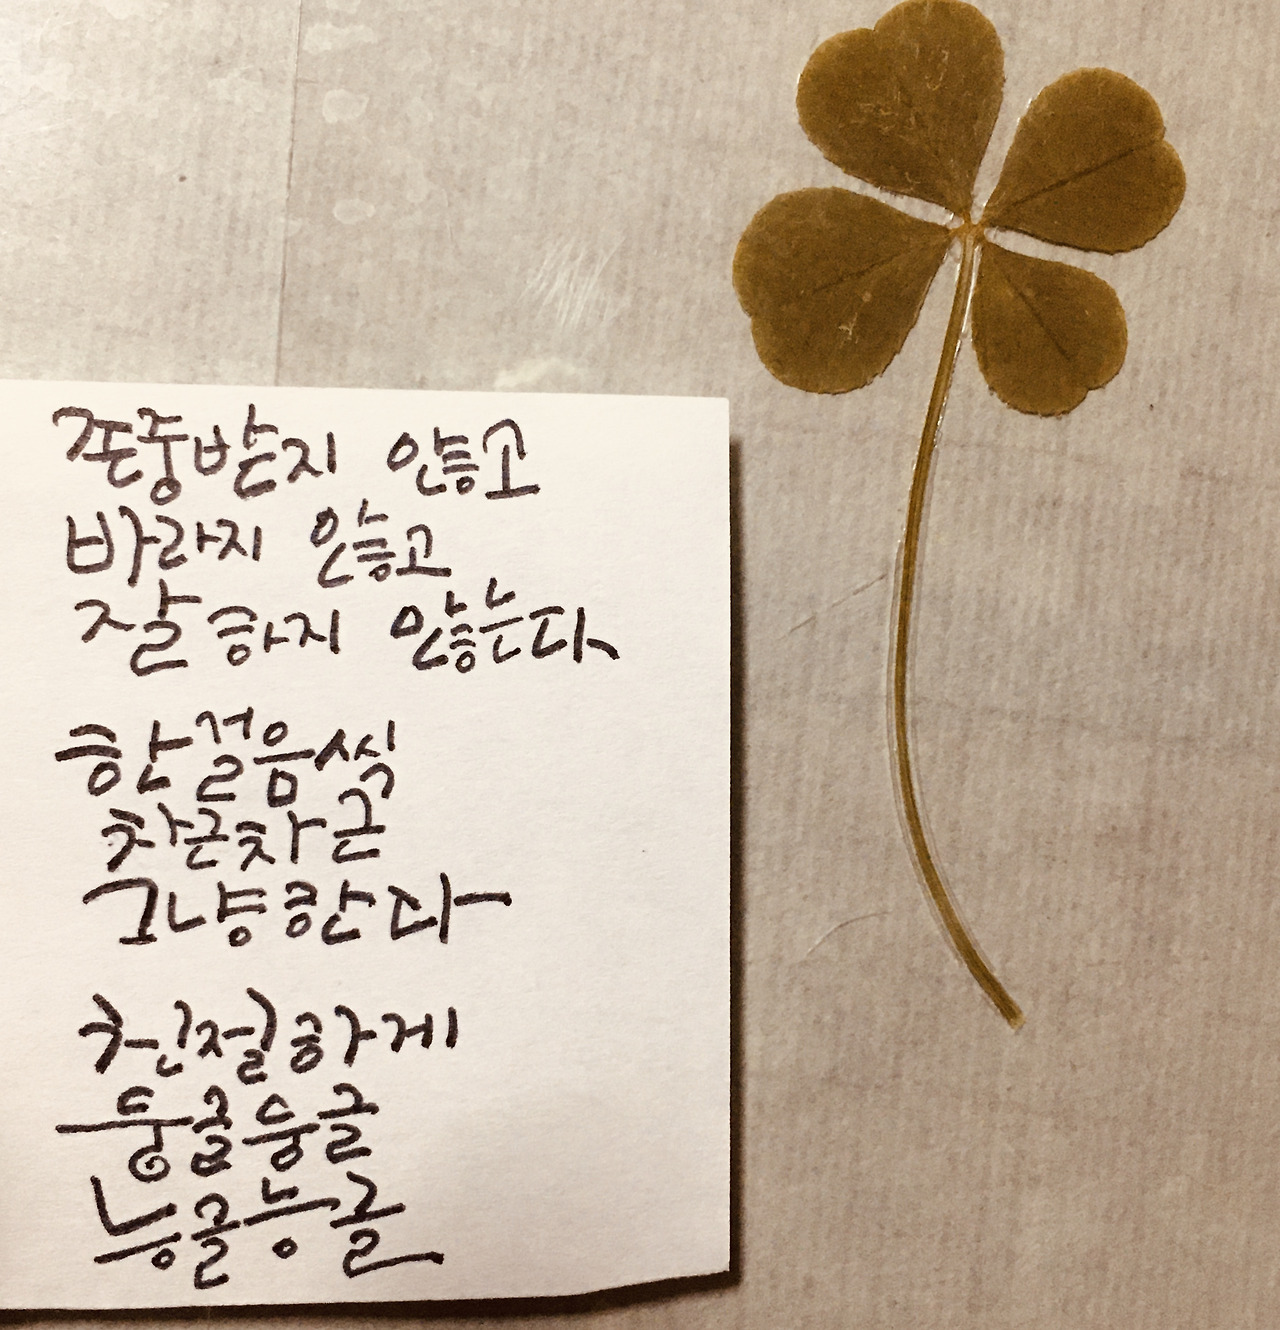 존중받지 않고
바라지 않고
잘하지 않는다
한걸음씩
차근차근
그냥한다
친절하게
둥글둥글
능글능글